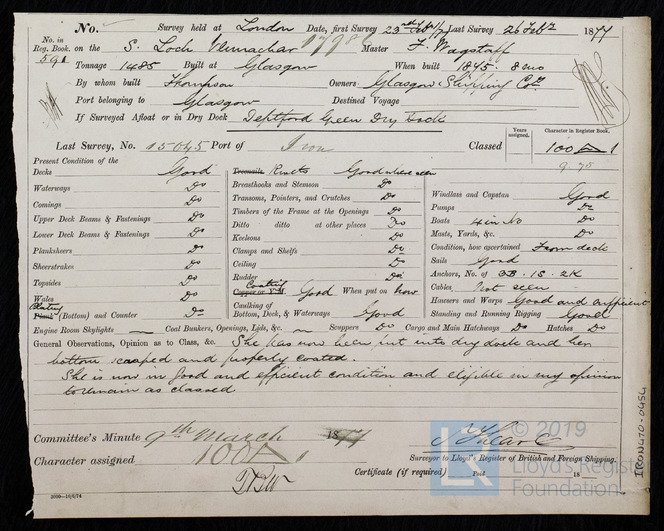 No. Survey held at London Date, first Survey 23rd Feb Last Survey 26 Feby 1877
No. in Reg. Book. 591 on the S. Loch Vennachar Master F. Wagstaff
Tonnage 1485 Built at Glasgow When built 1875. 8 mo
By whom built Thompson Owners Glasgow Shipping Coy
Port belonging to Glasgow Destined Voyage
If Surveyed Afloat or in Dry Dock Deptford Green Dry Dock
Last Survey, No. 15045 Port of Iron Classed
Years assigned. Character in Register Book.
100 A 1
9 75
Present Condition of the
Decks Good
Waterways Do
Comings Do
Upper Deck Beams & Fastenings Do
Lower Deck Beams & Fastenings Do
Planksheers Do
Sheerstrakes Do
Topsides Do
Wales Do
Plank (Bottom) and Counter Do
Treenails Rivets Good where seen
Breasthooks and Stemson Do
Transoms, Pointers, and Crutches Do
Timbers of the Frame at the Openings Do
Ditto ditto at other places Do
Keelsons Do
Clamps and Shelfs Do
Ceiling Do
Rudder Do
Coated
Copper or Y.M. Good When put on now
Caulking of
Bottom, Deck, & Waterways Good
Windlass and Capstan Good
Pumps Do
Boats 4 in No Do
Masts, Yards, &c. Do
Condition, how ascertained From deck
Sails Good
Anchors, No. of 3B. 1S. 2K
Cables Not seen
Hawsers and Warps Good and sufficient
Standing and Running Rigging Good
Engine Room Skylights Coal Bunkers, Openings, Lids, &c. Scuppers Do Cargo and Main Hatchways Do Hatches Do
General Observations, Opinion as to Class, &c. She has now been put into dry dock and her
bottom scraped and properly coated.
She is now in good and efficient condition and eligible in my opinion
to remain as classed
Committee's Minute 9th March 1877
Character assigned 100 A 1
Surveyor to Lloyd's Register of British and Foreign Shipping.
Certificate (if required) Past 18
2000—10/8/74
IRON470-0454
© 2019
Lloyd's Register
Foundation
LR